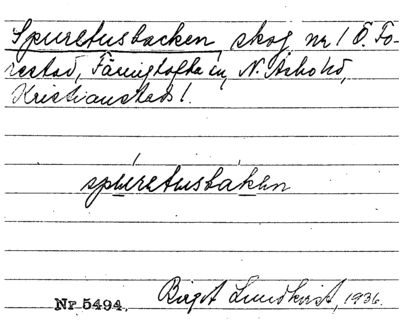 Spuretusbacken, skog nr 1 Ö. Fo-
restad, Färingtofta sn, N. Åsbo hd,
Kristianstads l.
spuretusbakan
Nr 5494. Birgit Lundkvist, 1936.